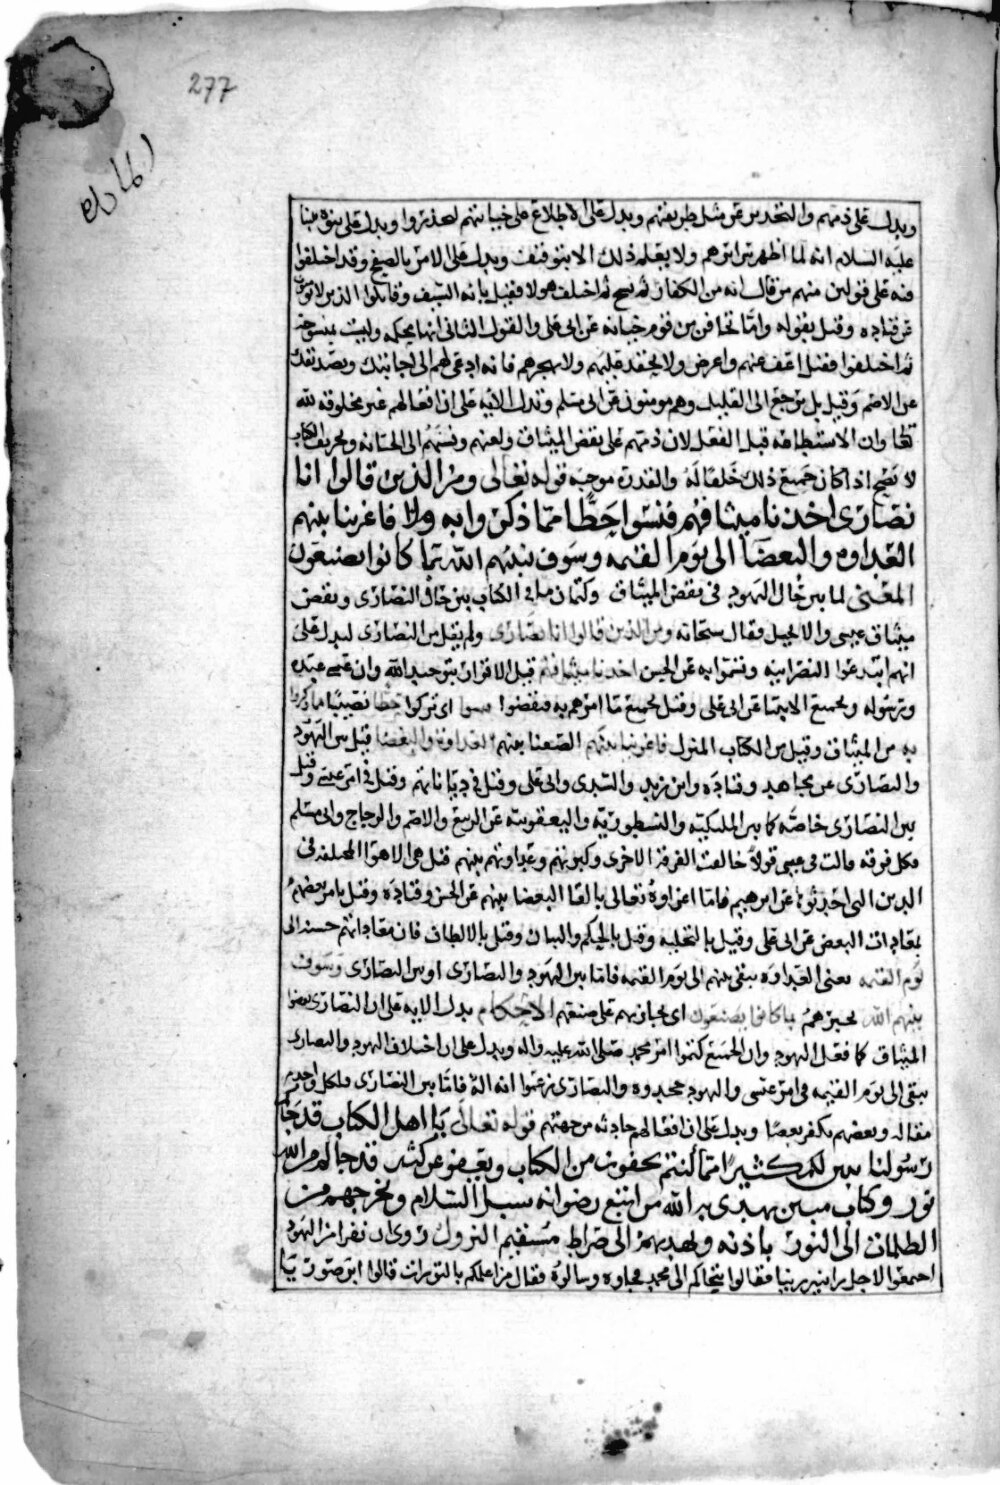 277
المائدة
ويدل على ذمهم والتحذير عن مثل طريقتهم ويدل على الاطلاع على خيانتهم ليحذروا ويدل على نبوة نبينا
عليه السلام انه لما اظهر سرايرهم ولا يعلم ذلك الا بتوقيف ويدل على الامر بالصفح وقد اختلفوا
فيه على قولين منهم من قال انه من الكفار ثم نسخ ثم اختلف هولا فقيل باية السيف وقاتلوا الذين لا يومنون
عن قتادة وقيل بقوله واما تخافن من قوم خيانة عن ابي علي والقول الثاني انها محكمة وليست بمنسوخة
ثم اختلفوا فقيل اعف عنهم واعرض ولا تحقد عليهم ولا تهجرهم فانه ادعى لهم الى اجابتك وتصديقك
عن الاصم وقيل بل يرجع الى القليل وهم مومنون عن ابي مسلم وتدل الاية على ان افعالهم غير مخلوقة لله
تعالى وان الاستطاعة قبل الفعل لان ذمهم على نقض الميثاق ولعنهم ونسبهم الى الخيانة وتحريف الكتاب
لا يصح اذا كان جميع ذلك خلقا له والقدرة موجبة قوله تعالى ومن الذين قالوا انا
نصارى اخذنا ميثاقهم فنسوا حظا مما ذكروا به ولا فاغرينا بينهم
العداوة والبغضا الى يوم القيمة وسوف ينبئهم الله بما كانوا يصنعون
المعنى لما بين حال اليهود في نقض الميثاق وكتمان ما في الكتاب بين حال النصارى ونقض
ميثاق عيسى والانجيل فقال سبحانه ومن الذين قالوا انا نصارى ولم يقل من النصارى ليدل على
انهم ابتدعوا النصرانية وتسموا به عن الحسن اخذنا ميثاقهم قيل الاقرار بتوحيد الله وان عيسى عبده
ورسوله وبجميع الانبيا عن ابي علي وقيل بجميع ما امرهم به فنقضوا فنسوا اي تركوا حظا نصيبا مما ذكروا
به من الميثاق وقيل من الكتاب المنزل فاغرينا بينهم الصقنا بينهم العداوة والبغضا قيل بين اليهود
والنصارى عن مجاهد وقتادة وابن زيد والسدي وابي علي وقيل في دياناتهم وقيل في امر عيسى وقيل
بين النصارى خاصة كما بين الملكية والنسطورية واليعقوبية عن الربيع والاصم والزجاج وابي مسلم
فكل فرقة قالت في عيسى قولا خالفت الفرقة الاخرى وعداوتهم بينهم قيل هي الاهوا المختلفة في
الدين التي احدثوها عن ابراهيم فاما اغراوه تعالى بالقا البغضا بينهم عن الحسن وقتادة وقيل بامر بعضهم
بمعادات البعض عن ابي علي وقيل بالتخلية وقيل بالحكم والبيان وقيل بالالطاف فان معاداتهم حسنة الى
يوم القيمة يعني العداوة تبقى بينهم الى يوم القيمة فاما بين اليهود والنصارى او بين النصارى وسوف
ينبئهم الله يخبرهم بما كانوا يصنعون اي يجازيهم على صنعهم الاحكام يدل الاية على ان النصارى نقضوا
الميثاق كما فعل اليهود وان الجميع كتموا امر محمد صلى الله عليه واله ويدل على ان اختلاف اليهود والنصارى
يبقى الى يوم القيمة في امر عيسى واليهود جحدوه والنصارى زعموا انه اله فاما بين النصارى فلكل واحد
مقالة وبعضهم يكفر بعضا ويدل على ان افعالهم حادثة من جهتهم قوله تعالى يا اهل الكتاب قد جاكم
رسولنا يبين لكم كثيرا مما كنتم تخفون من الكتاب ويعفو عن كثير قد جاكم من الله
نور وكتاب مبين يهدي به الله من اتبع رضوانه سبل السلام ويخرجهم من
الظلمات الى النور باذنه ويهديهم الى صراط مستقيم النزول روي ان نفرا من اليهود
اجتمعوا لاجل زانيين زنيا فقالوا نتحاكم الى محمد فجاوه وسالوه فقال من اعلمكم بالتورات قالوا ابن صوريا